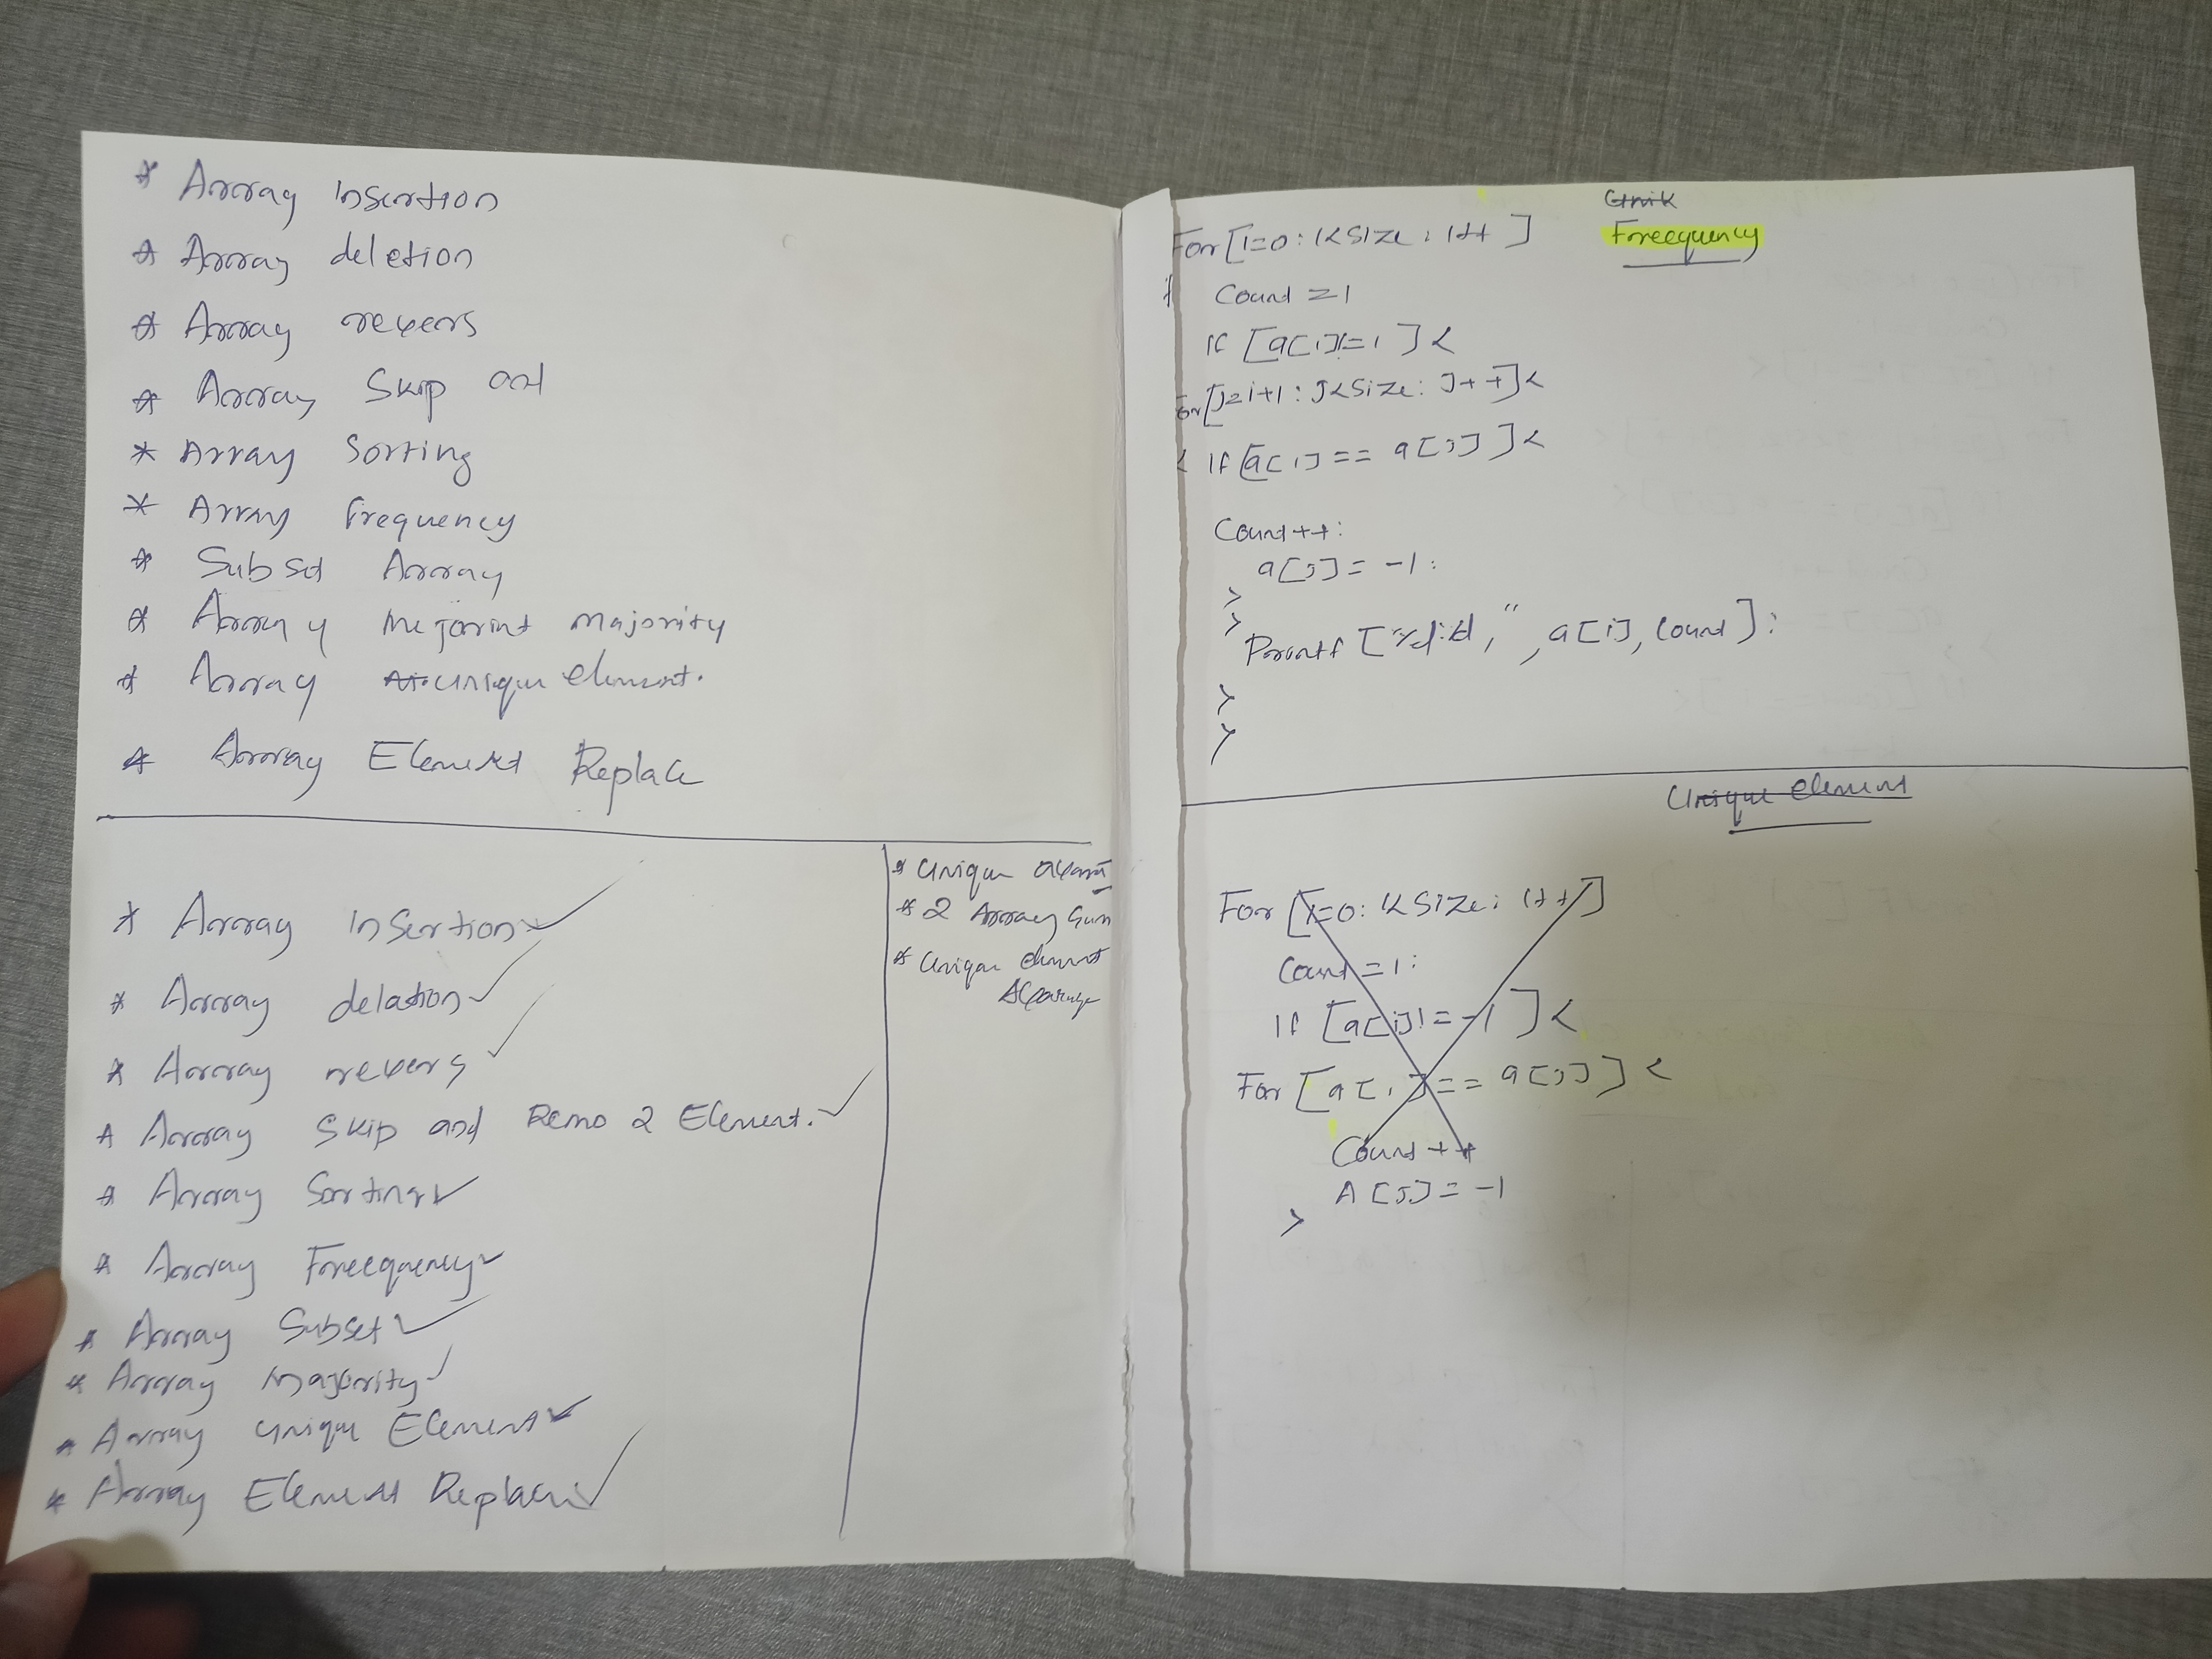 * Array insertion
* Array deletion
* Array revers
* Array Skip and
* Array Sorting
* Array frequency
* Subset Array
* Array majority
* Array unique element.
* Array Element Replace
* Array Insertion ✓
* Array delation ✓
* Array revers ✓
* Array Skip and Remo 2 Element. ✓
* Array Sorting ✓
* Array Freequency ✓
* Array Subset ✓
* Array majority ✓
* Array unique Element ✓
* Array Element Replace ✓
* Unique
* 2 Array Sum
* Unique element
Freequency
For [i=0: i<Size: i++ ]
Count =1
If [a[i]!=1 ] <
For [j=i+1: j<Size: j++]<
< If [a[i] == a[j] ]<
Count++:
a[j]= -1:
>
>
Printf ["%d:%d," , a[i], Count ]:
>
>
Unique element
For [i=0: i<Size: i++]
Count =1:
If [a[i]!=-1 ] <
For [a[i]== a[j] ] <
Count ++
A[j]= -1
>